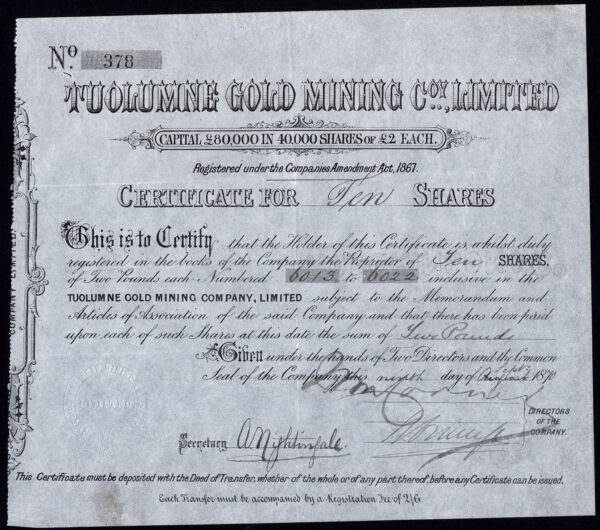 No. 378
TUOLUMNE GOLD MINING COY, LIMITED
CAPITAL £80,000 IN 40,000 SHARES OF £2 EACH.
Registered under the Companies Amendment Act, 1867.
CERTIFICATE FOR Ten SHARES
This is to Certify that the Holder of this Certificate is, whilst duly
registered in the books of the Company the Proprietor of Ten SHARES,
of Two Pounds each Numbered 6013 to 6022 inclusive in the
TUOLUMNE GOLD MINING COMPANY, LIMITED subject to the Memorandum and
Articles of Association of the said Company and that there has been paid
upon each of such Shares at this date the sum of Two Pounds
Given under the hands of Two Directors and the Common
Seal of the Company this ninth day of August Septr 1870
DIRECTORS
OF THE
COMPANY.
Secretary A. Nightingale
This Certificate must be deposited with the Deed of Transfer, whether of the whole or of any part thereof, before any Certificate can be issued.
Each Transfer must be accompanied by a Registration Fee of 2/6.
COMPANY LIMITED